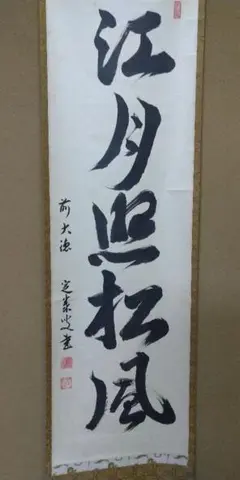 江月照松風
前大徳